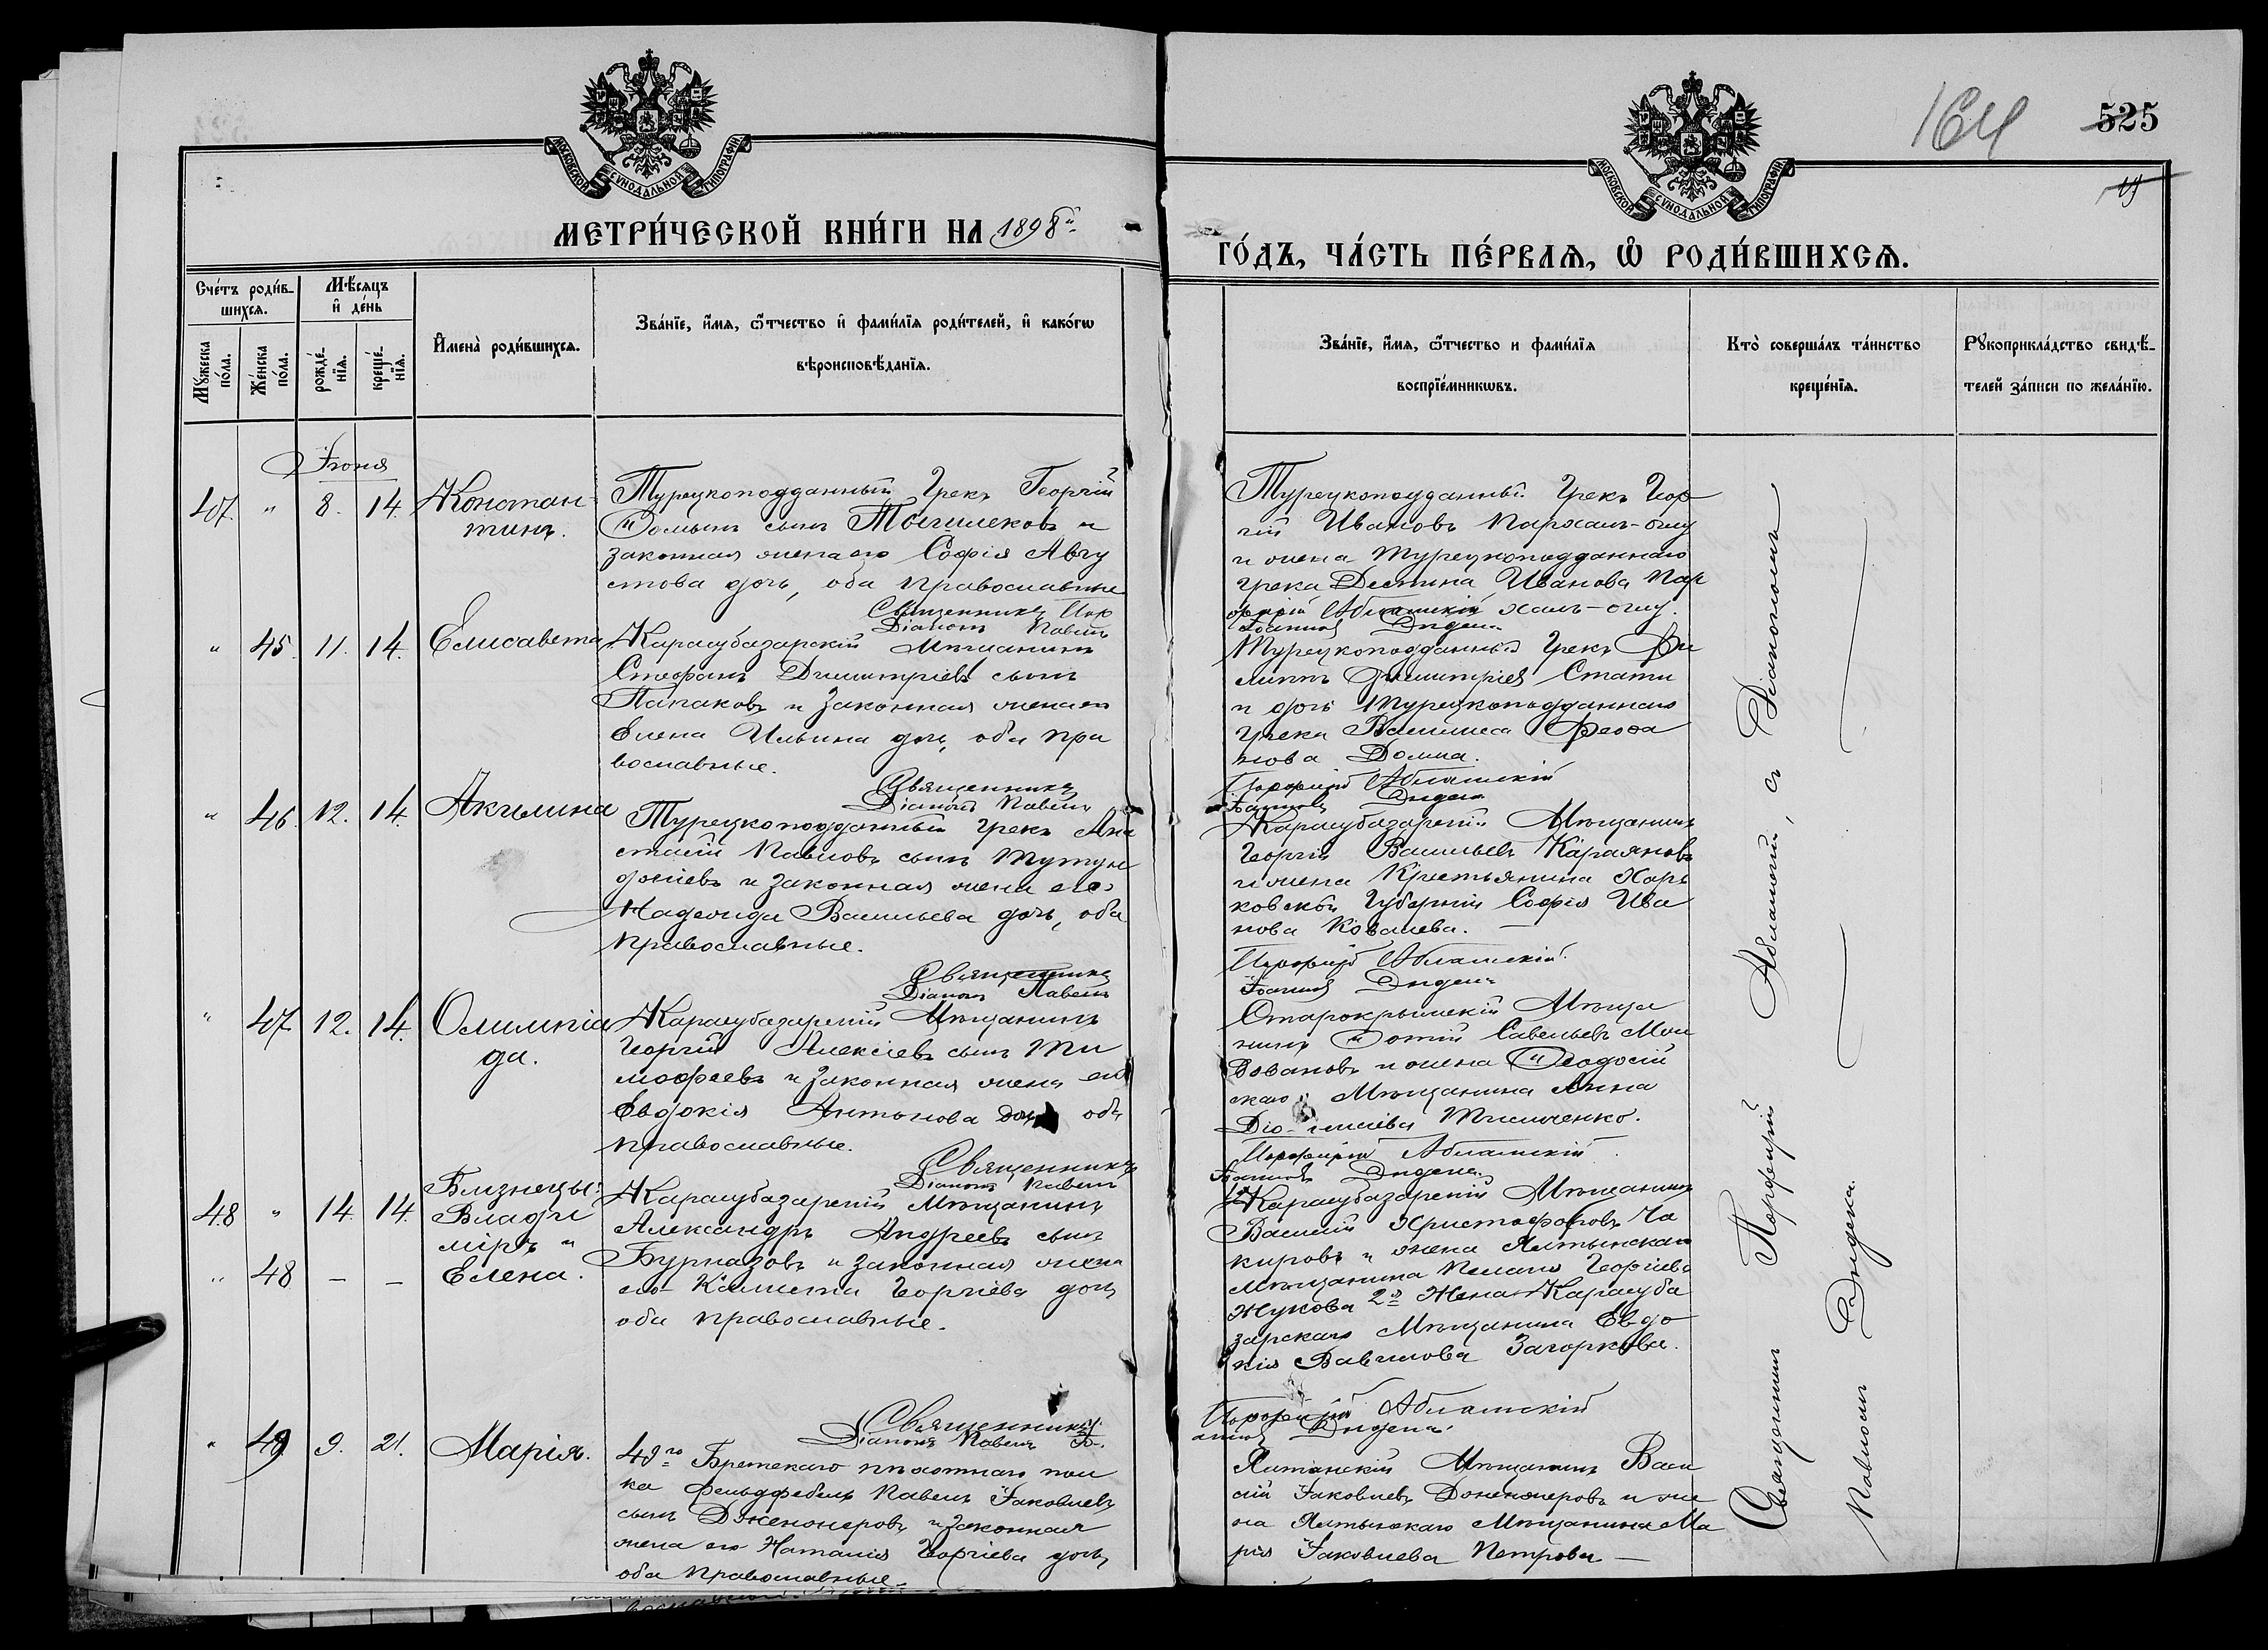 525
164
19
МОСКОВСКОЙ СѴНОДАЛЬНОЙ ТИПОГРАФІИ
МОСКОВСКОЙ СѴНОДАЛЬНОЙ ТИПОГРАФІИ
МЕТРИ́ЧЕСКОЙ КНИ́ГИ НА 1898й
ГО́ДЪ, ЧА́СТЬ ПЕ́РВАѦ, Ѡ҆ РОДИ́ВШИХСѦ.
Сче́тъ роди́в-
шихсѧ.
Мꙋ́жеска по́ла.
Же́нска по́ла.
Мѣ́сѧцъ
и҆ де́нь
рожде́-
нїѧ.
креще́-
нїѧ.
И҆мена̀ роди́вшихсѧ.
Зва́нїе, и҆́мѧ, ѻ҆́тчество и҆ фами́лїѧ роди́телей, и҆ како́гѡ
вѣроисповѣ́данїѧ.
Зва́нїе, и҆́мѧ, ѻ҆́тчество и фами́лїѧ
воспрїе́мникѡвъ.
Кто̀ соверша́лъ та́инство
креще́нїѧ.
Рꙋкоприкла́дство свидѣ́-
телей за́писи по жела́нїю.
Іюня
47. " 8. 14. Констан-
тинъ.
Турецкоподданный Грекъ Георгій
Ѳомынъ сынъ
законная жена его Софія Авгу
стова дочь, оба православные
Священникъ Пор
Діаконъ Павелъ
Турецкоподданный Грекъ Геор
гій Ивановъ Пархалъ-оглу
и жена Турецкоподданнаго
грека Деспина Иванова Пар
фирій Аблашкій халъ-оглу.
" 45. 11. 14. Елисавета
Карасубазарскій Мѣщанинъ
Стефанъ Димитріевъ сынъ
Папаковъ и законная жена его
Елена Ильина дочь, оба пра
вославные.
Священникъ
Діаконъ Павелъ
Турецкоподданный Грекъ Фи
липпъ Димитріев Стати
и дочь Турецкоподданнаго
Грека Василиса Феофа
нова Домна.
Порфирій Аблашкій
" 46. 12. 14. Акилина
Турецкоподданный грекъ Ана
стасій Павловъ сынъ Тутун
джіевъ и законная жена его
Надежда Васильева дочь, оба
православные.
Священникъ
Діаконъ Павелъ
Карасубазарскій Мѣщанинъ
Георгій Васильевъ Караяновъ
и жена Крестьянина Харь
ковской Губерніи Софія Ива
нова Ковалева. —
Порфирій Аблашкій.
" 47. 12. 14. Олимпіа
да.
Карасубазарскій Мѣщанинъ
Георгій Алексіевъ сынъ Ти
мофеевъ и законная жена его
Евдокія Антонова дочь оба
православные.
Священникъ
Діаконъ Павелъ
Старокрымскій Мѣща
нинъ Фотій Савельевъ Мол
довановъ и жена Ѳеодосій
скаго Мѣщанина Анна
Тимченко.
Порфирій Аблашкій
48 " 14. 14. Близнецы:
Влади
міръ и
" 48 — — Елена.
Карасубазарскій Мѣщанинъ
Александръ Андреевъ сынъ
Бурназовъ и законная жена
его Георгіева дочь
оба православные.
Священникъ
Діаконъ Павелъ
Карасубазарскій Мѣщанинъ
Василій Христофоровъ Ча
кировъ и жена Ялтынскаго
Мѣщанина Пелагія Георгіева
Жукова 2я Жена Карасуба
зарскаго Мѣщанина Евдо
кія Вавилова Загоркова.
Порфирій Аблашкій
" 49. 9. 21. Марія.
49го Брестскаго пѣхотнаго пол
ка фельдфебель Павелъ Іаковлевъ
сынъ Дженжеровъ и законная
жена его Наталія Георгіева дочь,
оба православные.
Ялтинскій Мѣщанинъ Васи
лій Іаковлевъ Дженжеровъ и же
на Ялтынскаго Мѣщанина Ма
рія Іаковлева Петрова —
Священникъ Порфирій Аблашкій, съ Діакономъ
Павломъ